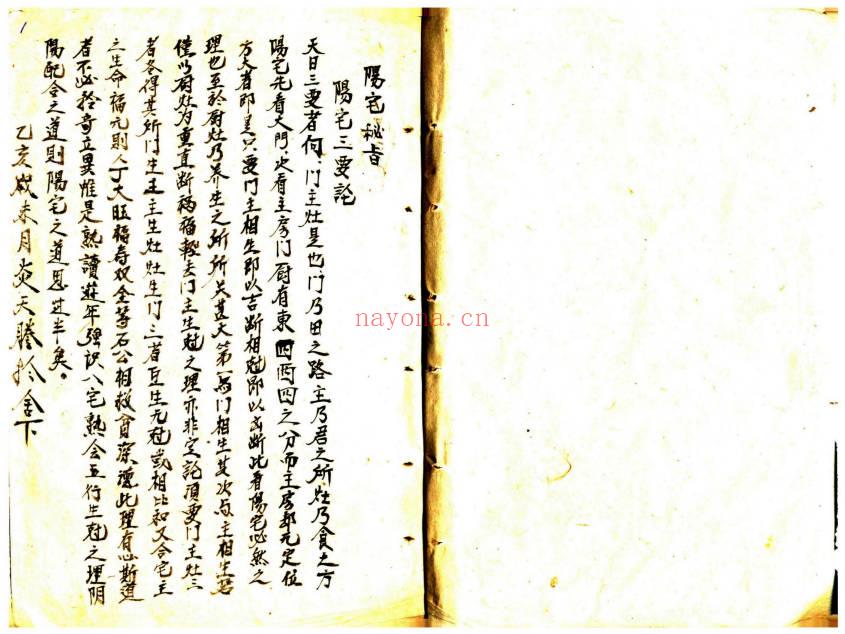 1
陽宅秘旨
陽宅三要訟
天曰三要者何門主灶是也门乃田之路主乃君之所灶乃食之方
陽宅先看大门次看主房门厨有東四西四之分而主房却无定位
方大者即是只要门主相生即以吉断相尅即以凶断此看陽宅必然之
理也至於厨灶乃养生之所所关甚大第一与门相生其次与主相生若
僅以厨灶为重直断祸福較去门主生尅之理亦非定訟須要门主灶三
者各得其所门生主主生灶灶生门三者互生无尅或相比和又合宅主
之生命福元則人丁大旺福寿双全等石公相救貧深德此理有心斯道
者不必拎奇立異惟是熟读遊年强识八宅熟会五行生尅之理阴
陽配合之道則陽宅之道思进半矣。
乙亥歲未月炎天謄於舍下
nayona.cn